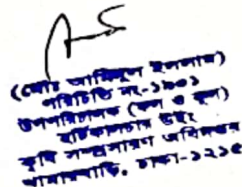 (মোঃ আমিনুল ইসলাম)
পরিচিতি নং-১৯০১
উপপরিচালক (ফল ও ফুল)
হর্টিকালচার উইং
কৃষি সম্প্রসারণ অধিদপ্তর
খামারবাড়ি, ঢাকা-১২১৫